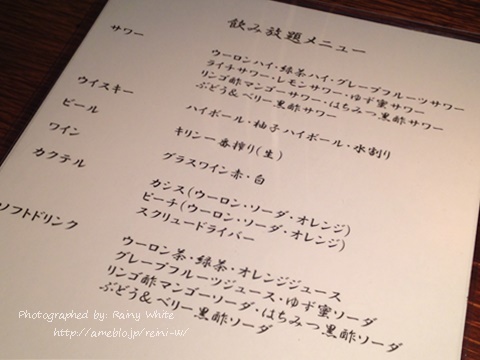 飲み放題メニュー
サワー
ウーロンハイ・緑茶ハイ・グレープフルーツサワー
ライチサワー・レモンサワー・ゆず蜜サワー
リンゴ酢マンゴーサワー・はちみつ黒酢サワー
ぶどう&ベリー黒酢サワー
ウイスキー
ハイボール・柚子ハイボール・水割り
ビール
キリン一番搾り(生)
ワイン
グラスワイン赤・白
カクテル
カシス(ウーロン・ソーダ・オレンジ)
ピーチ(ウーロン・ソーダ・オレンジ)
スクリュードライバー
ソフトドリンク
ウーロン茶・緑茶・オレンジジュース
グレープフルーツジュース・ゆず蜜ソーダ
リンゴ酢マンゴーソーダ・はちみつ黒酢ソーダ
ぶどう&ベリー黒酢ソーダ
Photographed by: Rainy White
http://ameblo.jp/reini-w/